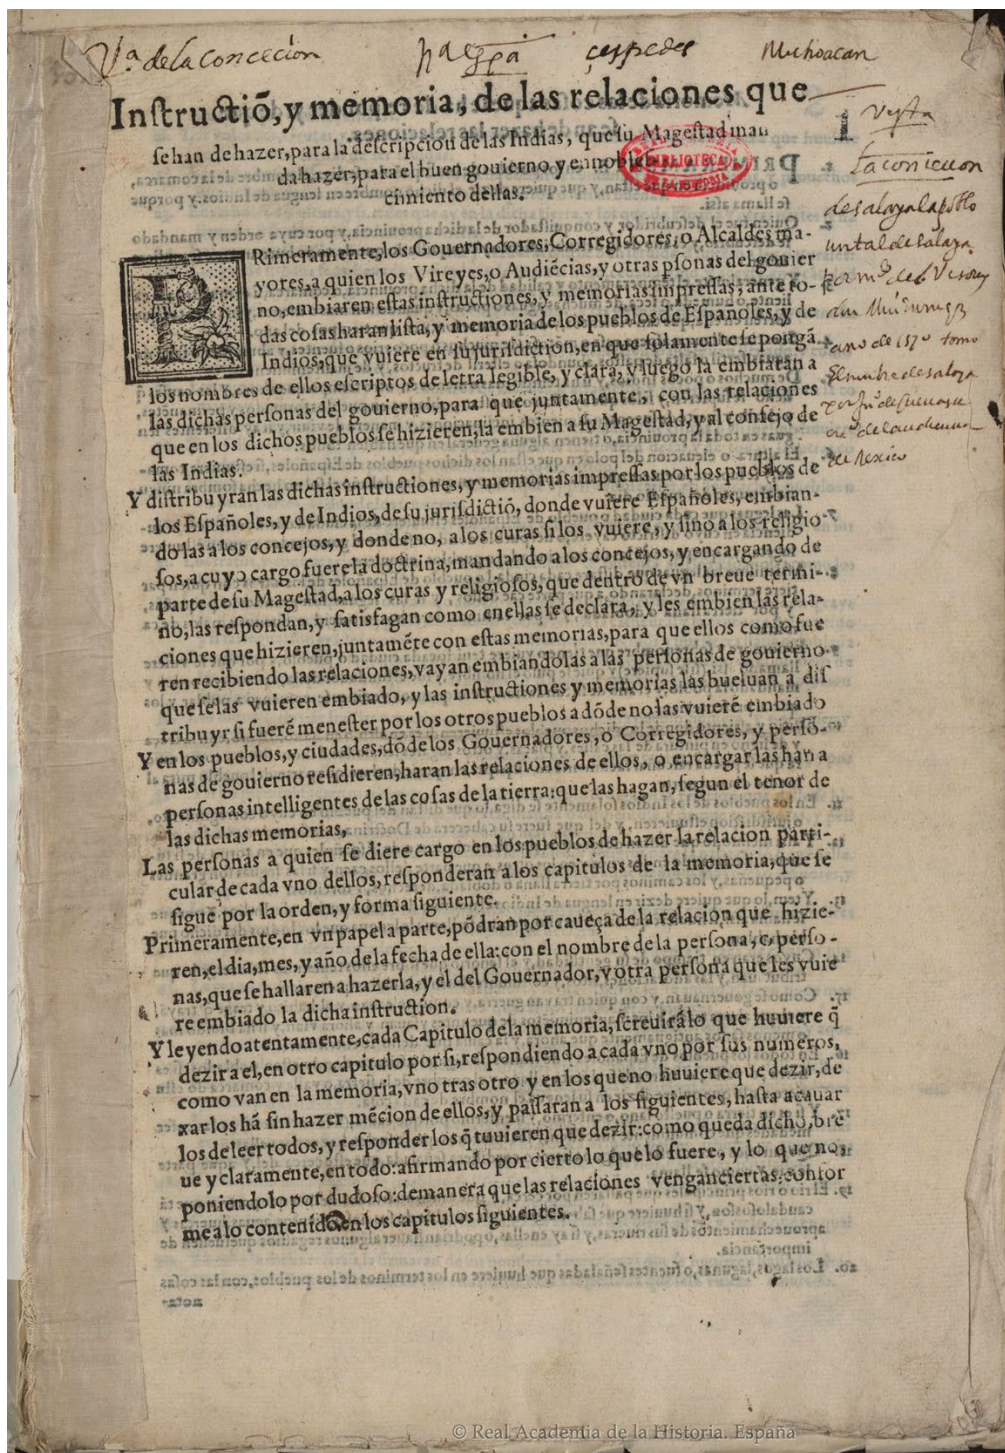 Vª. de la conceción
naespª
cespedes
Michoacan
Instructiõ, y memoria, de las relaciones que
se han de hazer, para la descripcion de las Indias, que su Magestad man
da hazer, para el buen gouierno y ennoble
cimiento dellas.
1
Vista
BIBLIOTECA
PRimeramente, los Gouernadores, Corregidores, o Alcaldes ma-
yores, a quien los Vireyes, o Audiẽcias, y otras psonas del gouier
no, embiaren estas instructiones, y memorias impressas, ante to-
das cosas haran lista, y memoria de los pueblos de Españoles, y de
Indios, que vuiere en su jurisdiction, en que solamente se pongã
los nombres de ellos escriptos de letra legible, y clara, y luego la embiaran a
las dichas personas del gouierno, para que juntamente, con las relaciones
que en los dichos pueblos se hizieren, la embien a su Magestad, y al consejo de
las Indias.
Y distribuyran las dichas instructiones, y memorias impressas por los pueblos de
los Españoles, y de Indios, de su jurisdictiõ, donde vuiere Españoles, embian-
do las a los concejos, y donde no, a los curas si los vuiere, y sino a los religio
sos, a cuyo cargo fuere la doctrina, mandando a los concejos, y encargando de
parte de su Magestad, a los curas y religiosos, que dentro de vn breue termi-
no, las respondan, y satisfagan como en ellas se declara, y les embien las rela-
ciones que hizieren, juntamẽte con estas memorias, para que ellos como fue
ren recibiendo las relaciones, vayan embiandolas a las personas de gouierno
que se las vuieren embiado, y las instructiones y memorias las bueluan a dis
tribuyr si fuerẽ menester por los otros pueblos a dõde no las vuierẽ embiado
Y en los pueblos, y ciudades, dõde los Gouernadores, o Corregidores, y perso-
nas de gouierno residieren, haran las relaciones de ellos, o encargar las han a
personas intelligentes de las cosas de la tierra: que las hagan, segun el tenor de
las dichas memorias,
Las personas a quien se diere cargo en los pueblos de hazer la relacion parti-
cular de cada vno dellos, responderan a los capitulos de la memoria, que se
sigue por la orden, y forma siguiente.
Primeramente, en vn papel a parte, põdran por caueça de la relacion que hizie-
ren, el dia, mes, y año de la fecha de ella: con el nombre de la persona, o perso-
nas, que se hallaren a hazerla, y el del Gouernador, v otra persona que les vuie
re embiado la dicha instruction.
Y leyendo atentamente, cada Capitulo de la memoria, screuirã lo que huuiere q̃
dezir a el, en otro capitulo por si, respondiendo a cada vno por sus numeros,
como van en la memoria, vno tras otro y en los que no huuiere que dezir, de
xarlos hã sin hazer mẽcion de ellos, y passaran a los siguientes, hasta acauar
los de leer todos, y responder los q̃ tuuieren que dezir: como queda dicho, bre
ue y claramente, en todo: afirmando por cierto lo que lo fuere, y lo que no,
poniendolo por dudoso: de manera que las relaciones vengan ciertas, confor
me a lo contenido en los capitulos siguientes.
© Real Academia de la Historia. España